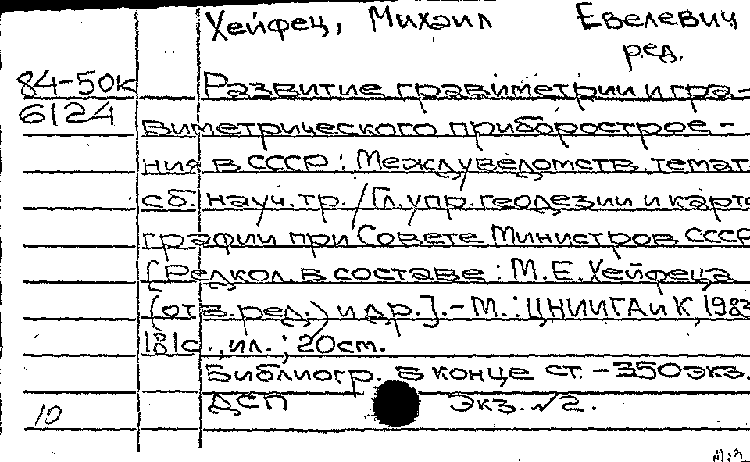 Хейфец, Михаил Евелевич
ред.
84-50к Развитие гравиметрии и гра-
6124 виметрического приборострое-
ния в СССР : Междуведомств. темат.
сб. науч. тр. / Гл. упр. геодезии и карто
графии при Совете Министров СССР
[Редкол. в составе : М.Е. Хейфеца
(отв. ред.) и др.]. - М. : ЦНИИГАиК, 1983
181с., ил. ; 20 см.
Библиогр. в конце ст. - 350 экз.
ДСП Экз. №2.
10